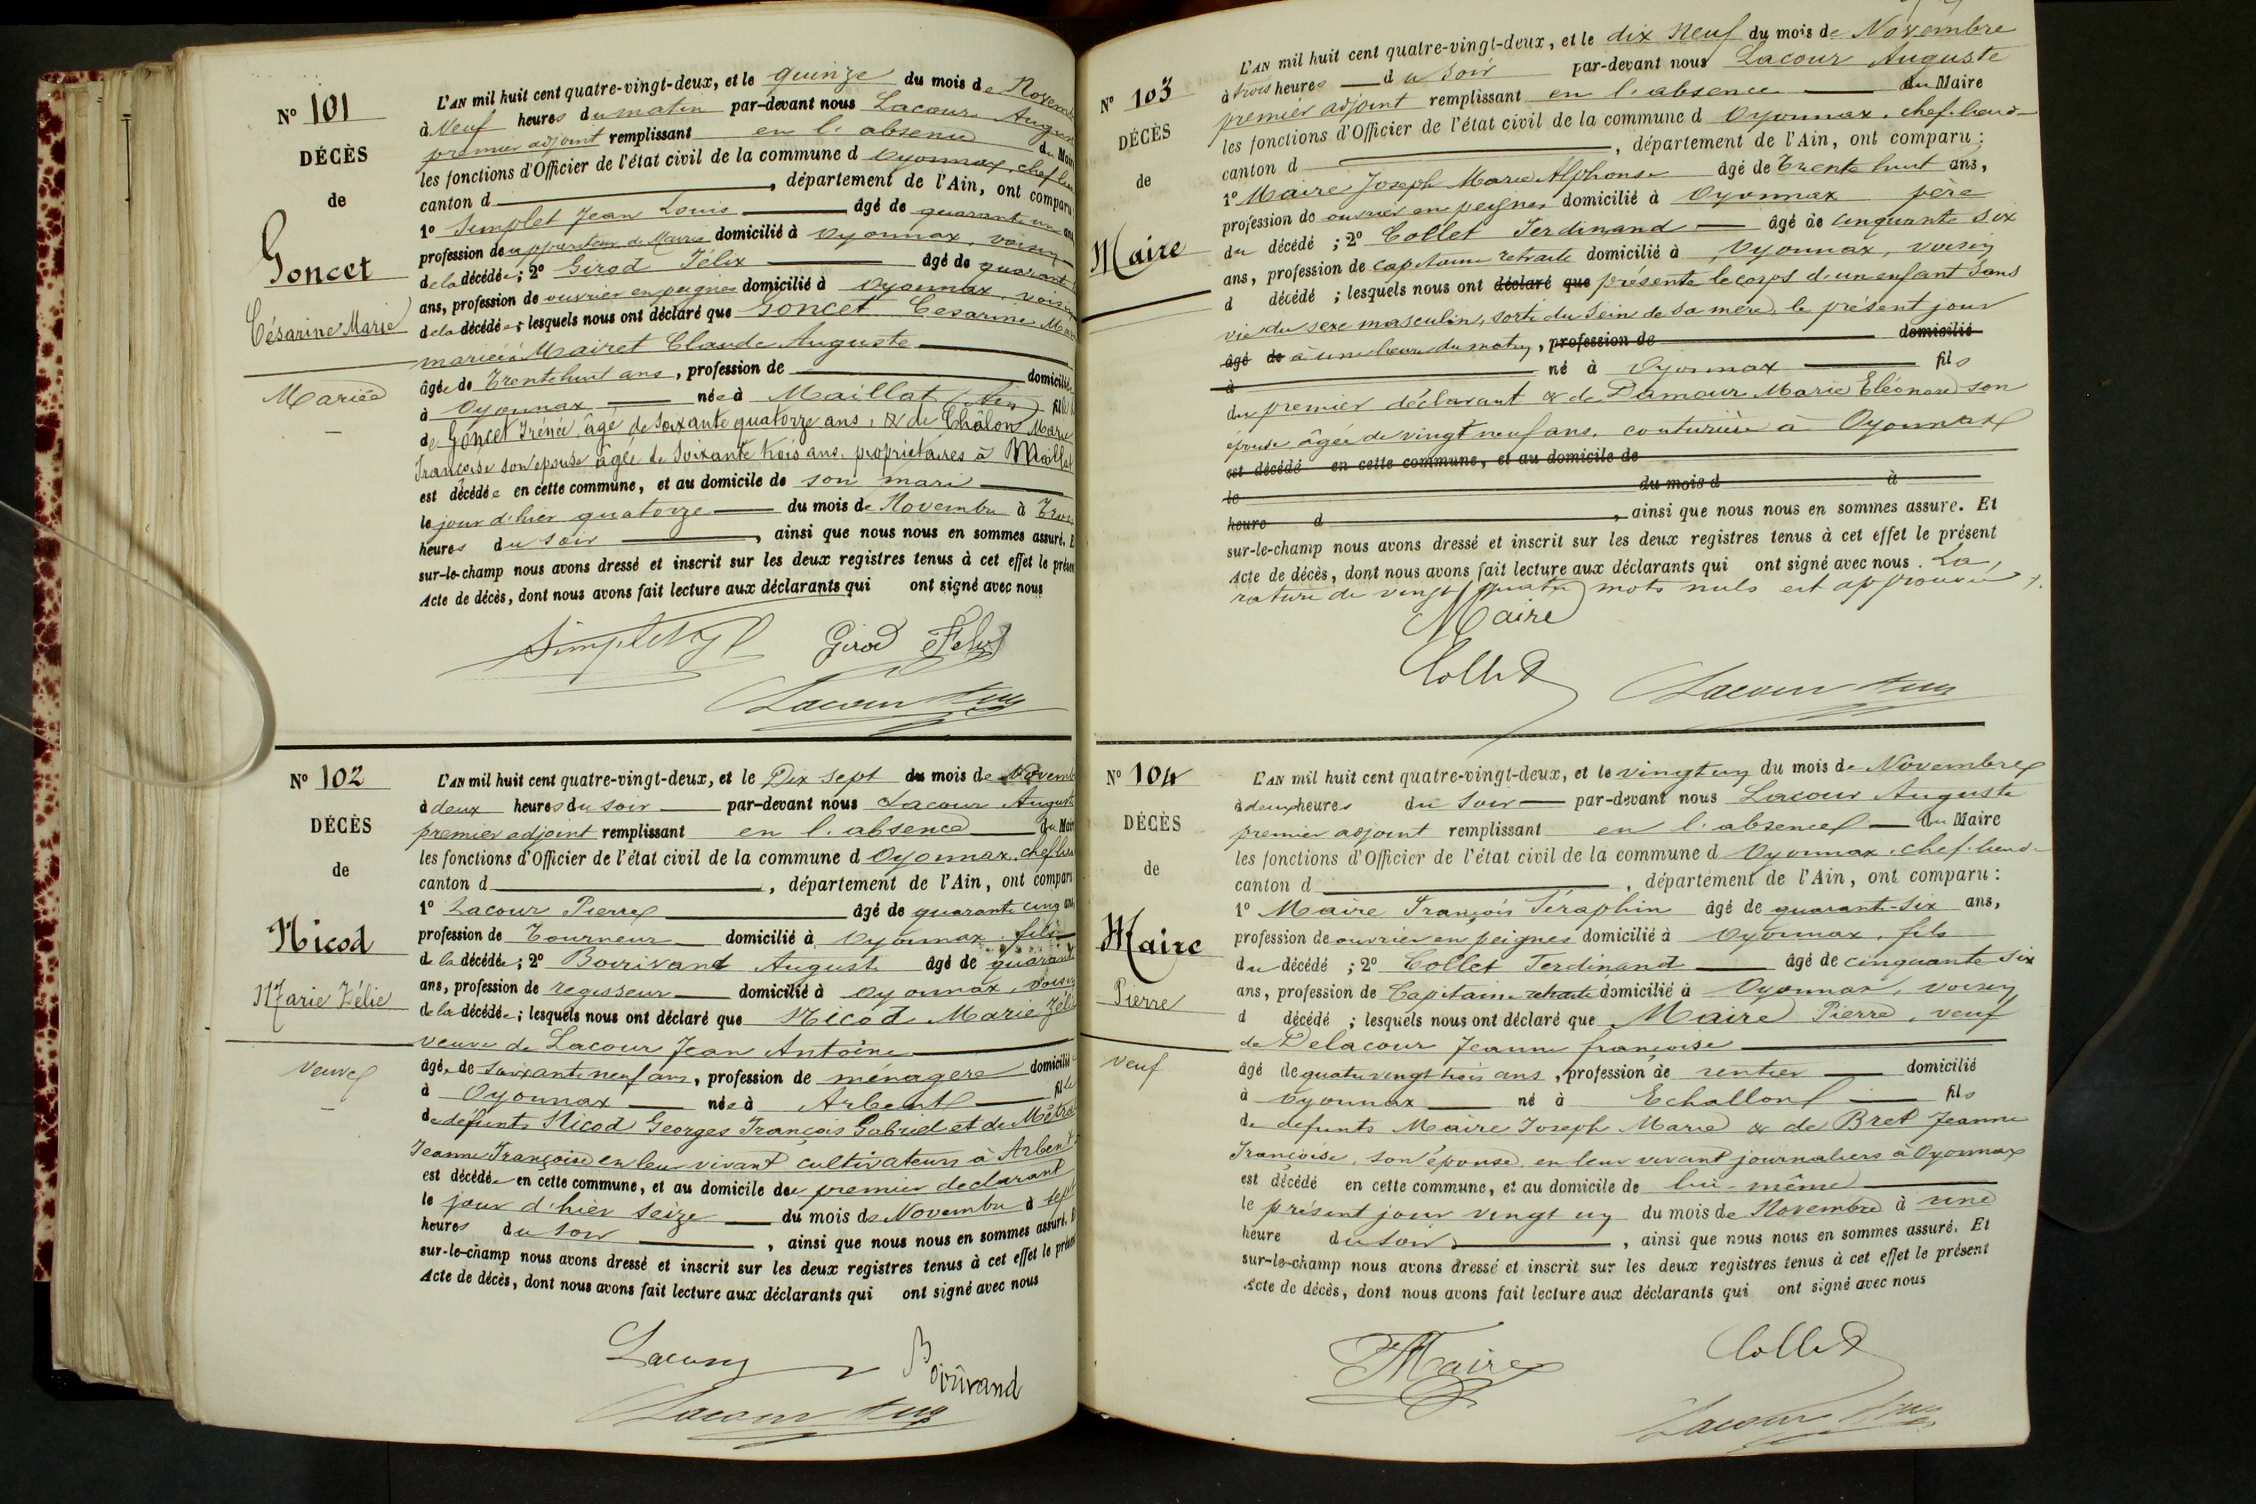 N° 101
DÉCÈS
de
Goncet
Césarine Marie
Mariée
L'AN mil huit cent quatre-vingt-deux, et le quinze du mois de Novem
à Neuf heures du matin par-devant nous Lacour August
premier adjoint remplissant en l'absence du Mair
les fonctions d'Officier de l'état civil de la commune d Oyonnax, chef lieu
canton d , département de l'Ain, ont comparu
1° Simplet Jean Louis âgé de quarante un ans
profession de appariteur de Mairie domicilié à Oyonnax, voisin
de la décédée ; 2° Girod Félix âgé de quarant
ans, profession de ouvrier en peignes domicilié à Oyonnax, voisin
de la décédée ; lesquels nous ont déclaré que Goncet Césarine Mar
mariée à Mairet Claude Auguste
âgée de Trente huit ans, profession de domicilié
à Oyonnax née à Maillat (Ain) fille
de Goncet Irénée, âgé de soixante quatorze ans, & de Châlons Marie
Françoise son épouse âgée de soixante trois ans, propriétaires à Maillat
est décédée en cette commune, et au domicile de son mari
le jour d'hier quatorze du mois de Novembre à Trois
heures du soir , ainsi que nous nous en sommes assuré. E
sur-le-champ nous avons dressé et inscrit sur les deux registres tenus à cet effet le présen
Acte de décès, dont nous avons fait lecture aux déclarants qui ont signé avec nous
Simplet Girod Félix
Lacour Aug
N° 102
DÉCÈS
de
Nicod
Marie Zélie
Veuve
L'AN mil huit cent quatre-vingt-deux, et le Dix sept du mois de Novemb
à deux heures du soir par-devant nous Lacour August
premier adjoint remplissant en l'absence du Mair
les fonctions d'Officier de l'état civil de la commune d Oyonnax, chef lieu
canton d , département de l'Ain, ont comparu
1° Lacour Pierre âgé de quarante cinq ans
profession de Tourneur domicilié à Oyonnax, fils
de la décédée ; 2° Bourivand Auguste âgé de quarante
ans, profession de régisseur domicilié à Oyonnax, voisin
de la décédée ; lesquels nous ont déclaré que Nicod Marie Zélie
veuve de Lacour Jean Antoine
âgée de soixante neuf ans, profession de ménagère domicilié
à Oyonnax née à Arbent fille
de défunts Nicod Georges François Gabriel et de Métra
Jeanne Françoise en leur vivant cultivateurs à Arbent
est décédée en cette commune, et au domicile de premier déclarant
le jour d'hier seize du mois de Novembre à sept
heures du soir , ainsi que nous nous en sommes assuré. E
sur-le-champ nous avons dressé et inscrit sur les deux registres tenus à cet effet le présen
Acte de décès, dont nous avons fait lecture aux déclarants qui ont signé avec nous
Lacour Bourivand
Lacour Aug
N° 103
DÉCÈS
de
Maire
L'AN mil huit cent quatre-vingt-deux, et le dix neuf du mois de Novembre
à trois heures du soir par-devant nous Lacour Auguste
premier adjoint remplissant en l'absence du Maire
les fonctions d'Officier de l'état civil de la commune d Oyonnax, chef-lieu d
canton d , département de l'Ain, ont comparu :
1° Maire Joseph Marie Alphonse âgé de Trente huit ans,
profession de ouvrier en peignes domicilié à Oyonnax père
du décédé ; 2° Collet Ferdinand âgé de cinquante six
ans, profession de capitaine retraité domicilié à Oyonnax, voisin
d décédé ; lesquels nous ont déclaré que présenté le corps d'un enfant sans
vie du sexe masculin, sorti du sein de sa mère, le présent jour
âgé de à une heure du matin, profession de domicilié
à né à Oyonnax fils
du premier déclarant & de Damour Marie Eléonore son
épouse âgée de vingt neuf ans, couturière à Oyonnax
est décédé en cette commune, et au domicile de
le du mois d à
heure d , ainsi que nous nous en sommes assuré. Et
sur-le-champ nous avons dressé et inscrit sur les deux registres tenus à cet effet le présent
Acte de décès, dont nous avons fait lecture aux déclarants qui ont signé avec nous. La
rature de vingt quatre mots nuls est approuvée
Maire
Collet Lacour Aug
N° 104
DÉCÈS
de
Maire
Pierre
Veuf
L'AN mil huit cent quatre-vingt-deux, et le vingt un du mois de Novembre
à deux heures du soir par-devant nous Lacour Auguste
premier adjoint remplissant en l'absence du Maire
les fonctions d'Officier de l'état civil de la commune d Oyonnax, chef-lieu d
canton d , département de l'Ain, ont comparu :
1° Maire François Séraphin âgé de quarante-six ans,
profession de ouvrier en peignes domicilié à Oyonnax, fils
du décédé ; 2° Collet Ferdinand âgé de cinquante six
ans, profession de Capitaine retraité domicilié à Oyonnax, voisin
d décédé ; lesquels nous ont déclaré que Maire Pierre, veuf
de Delacour Jeanne françoise
âgé de quatre vingt trois ans, profession de rentier domicilié
à Oyonnax né à Echallon fils
de défunts Maire Joseph Marie & de Bret Jeanne
Françoise, son épouse, en leur vivant journaliers à Oyonnax
est décédé en cette commune, et au domicile de lui-même
le présent jour vingt un du mois de Novembre à une
heure du soir , ainsi que nous nous en sommes assuré. Et
sur-le-champ nous avons dressé et inscrit sur les deux registres tenus à cet effet le présent
Acte de décès, dont nous avons fait lecture aux déclarants qui ont signé avec nous
Maire Collet
Lacour Aug